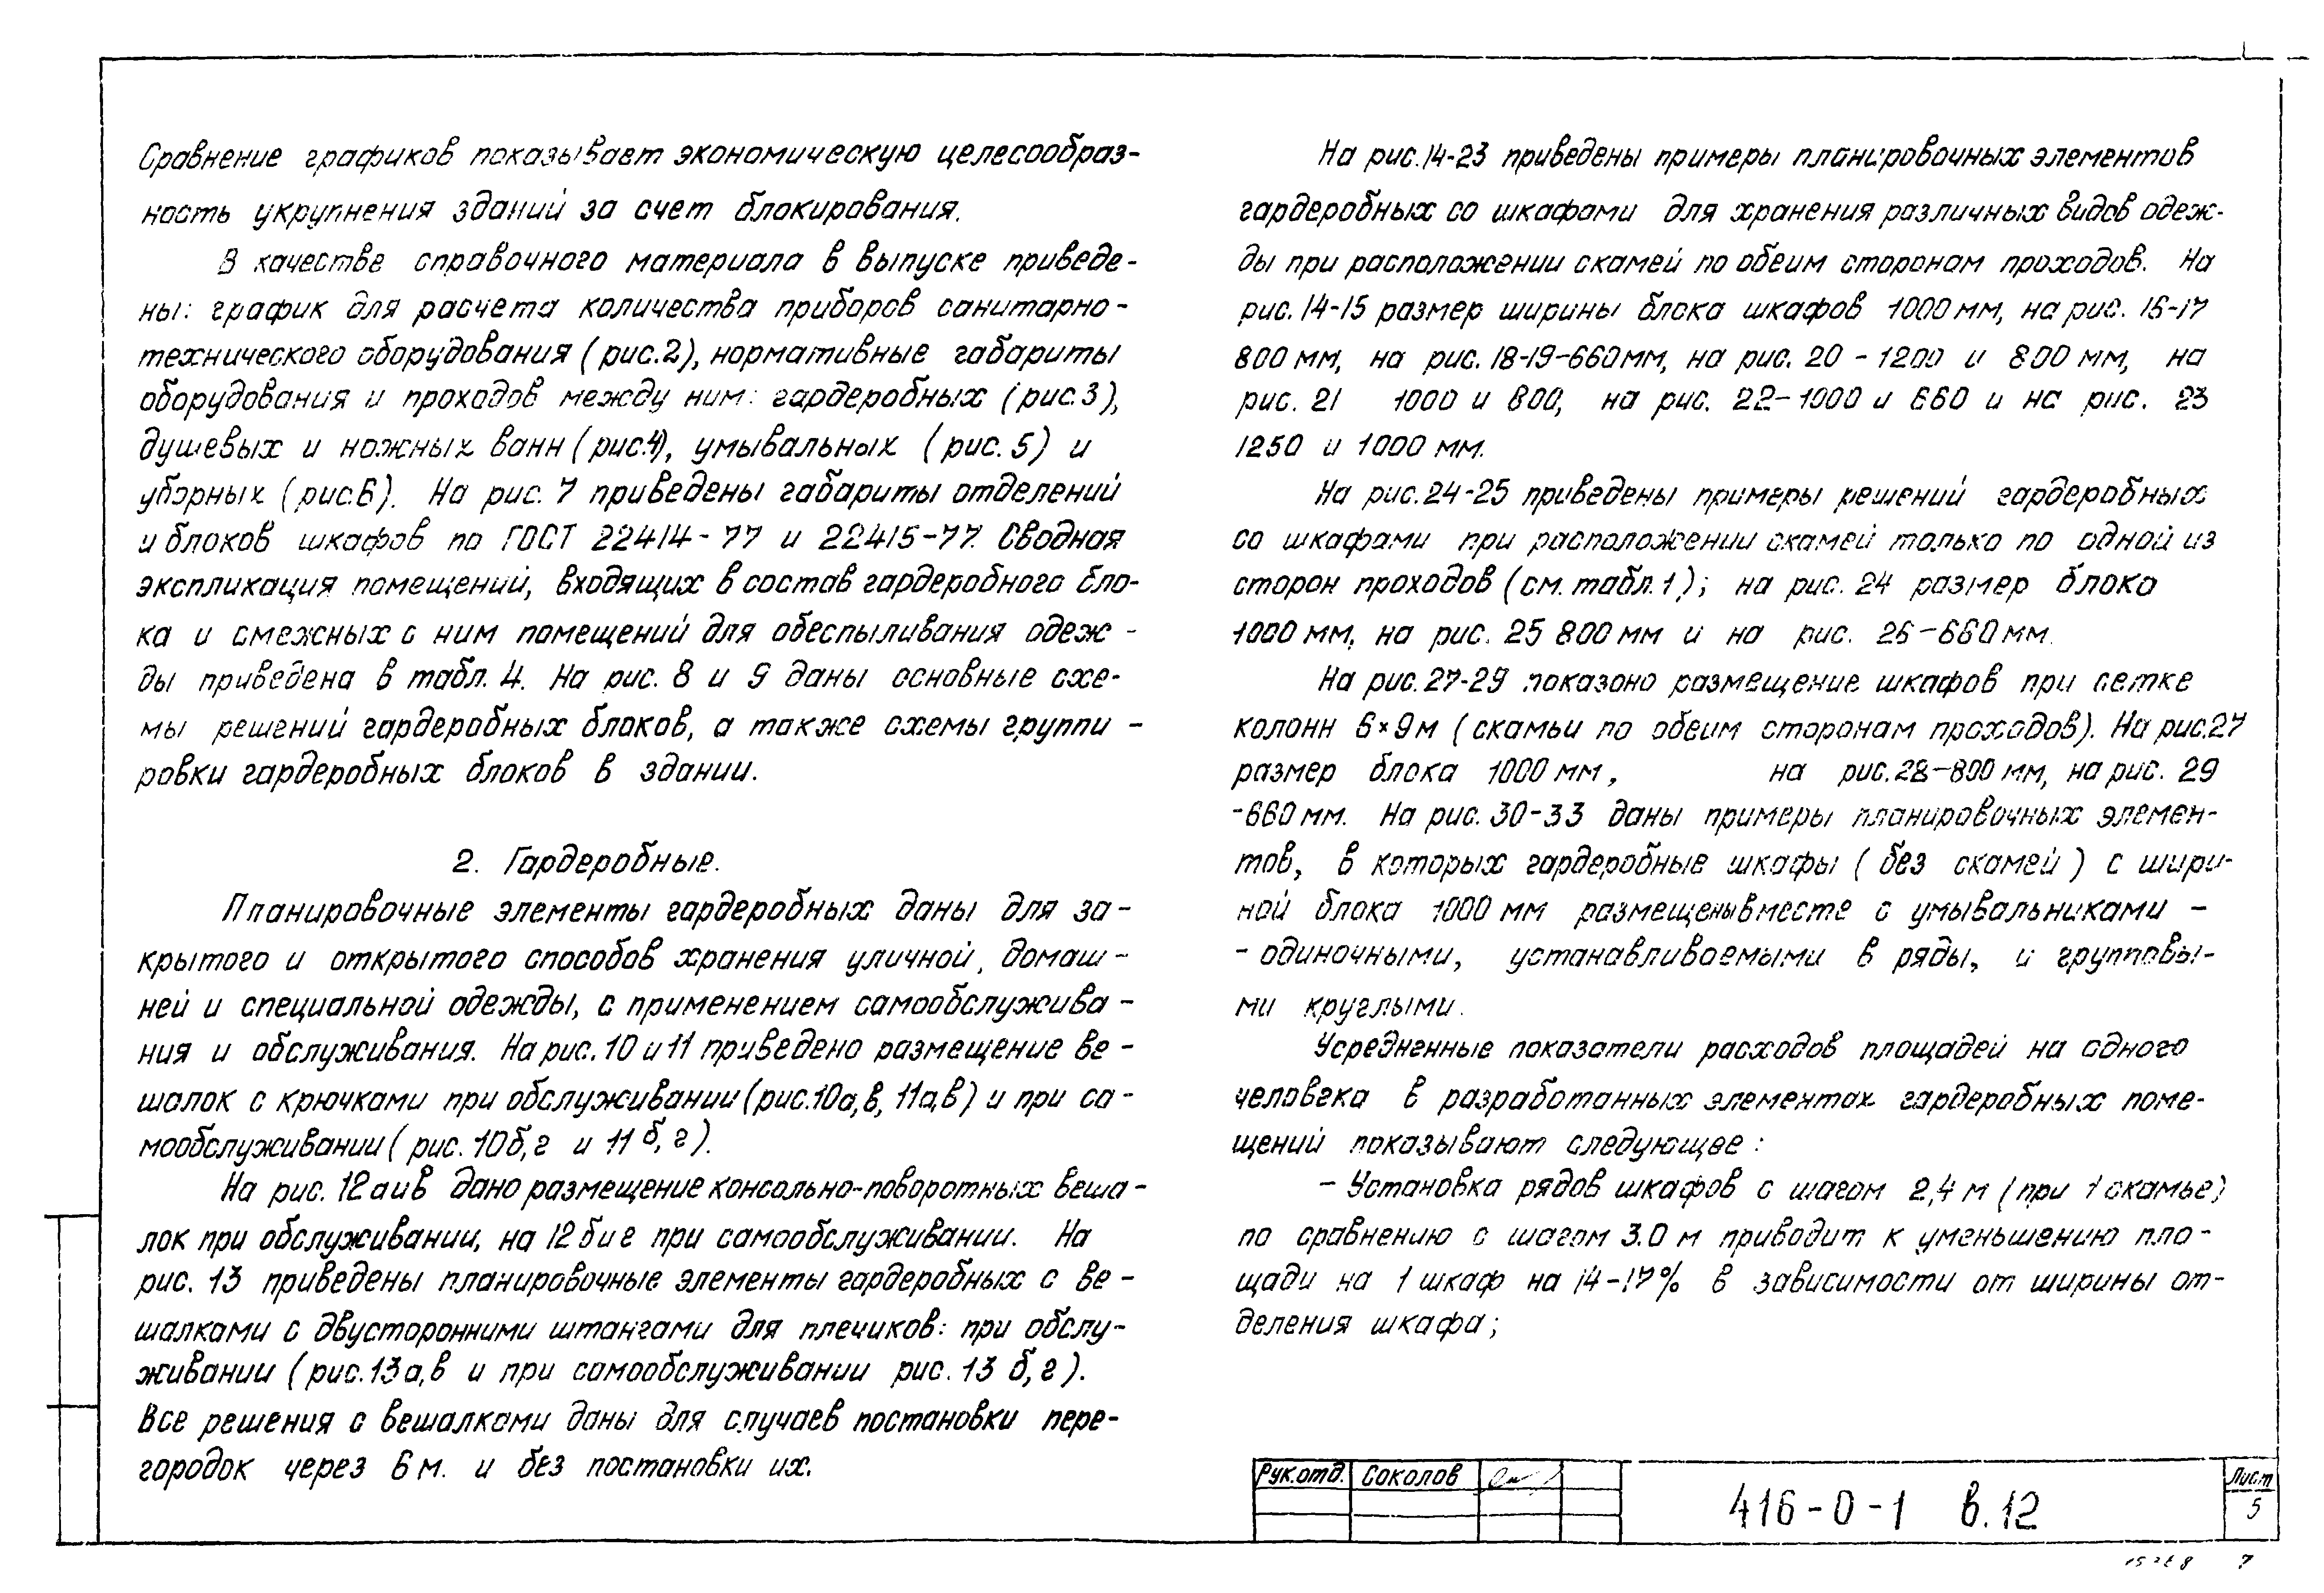 Сравнение графиков показывает экономическую целесообраз-
ность укрупнения зданий за счет блокирования.
В качестве справочного материала в выпуске приведе-
ны: график для расчета количества приборов санитарно-
технического оборудования (рис.2), нормативные габариты
оборудования и проходов между ним: гардеробных (рис.3),
душевых и ножных ванн (рис.4), умывальных (рис. 5) и
уборных (рис.6). На рис. 7 приведены габариты отделений
и блоков шкафов по ГОСТ 22414-77 и 22415-77. Сводная
экспликация помещений, входящих в состав гардеробного бло-
ка и смежных с ним помещений для обеспыливания одеж-
ды приведена в табл. 4. На рис. 8 и 9 даны основные схе-
мы решений гардеробных блоков, а также схемы группи-
ровки гардеробных блоков в здании.
2. Гардеробные.
Планировочные элементы гардеробных даны для за-
крытого и открытого способов хранения уличной, домаш-
ней и специальной одежды, с применением самообслужива-
ния и обслуживания. На рис. 10 и 11 приведено размещение ве-
шалок с крючками при обслуживании (рис.10а,в, 11а,в) и при са-
мообслуживании (рис. 10б,г и 11 б,г).
На рис. 12 а и в дано размещение консольно-поворотных веша-
лок при обслуживании, на 12 б и г при самообслуживании. На
рис. 13 приведены планировочные элементы гардеробных с ве-
шалками с двусторонними штангами для плечиков: при обслу-
живании (рис.13 а,в и при самообслуживании рис. 13 б,г).
Все решения с вешалками даны для случаев постановки пере-
городок через 6 м. и без постановки их.
На рис.14-23 приведены примеры планировочных элементов
гардеробных со шкафами для хранения различных видов одеж-
ды при расположении скамей по обеим сторонам проходов. На
рис. 14-15 размер ширины блока шкафов 1000 мм, на рис. 16-17
800 мм, на рис. 18-19-660мм, на рис. 20 - 1200 и 800 мм, на
рис. 21 1000 и 800, на рис. 22-1000 и 660 и на рис. 23
1250 и 1000 мм.
На рис.24-25 приведены примеры решений гардеробных
со шкафами при расположении скамей только по одной из
сторон проходов (см. табл. 1); на рис. 24 размер блока
1000 мм, на рис. 25 800 мм и на рис. 26-660 мм.
На рис.27-29 показано размещение шкафов при сетке
колонн 6×9м (скамьи по обеим сторонам проходов). На рис.27
размер блока 1000 мм, на рис.28-800 мм, на рис. 29
-660 мм. На рис. 30-33 даны примеры планировочных элемен-
тов, в которых гардеробные шкафы (без скамей) с шири-
ной блока 1000 мм размещены вместе с умывальниками -
- одиночными, устанавливаемыми в ряды, и групповы-
ми круглыми.
Усредненные показатели расходов площадей на одного
человека в разработанных элементах гардеробных поме-
щений показывают следующее:
- Установка рядов шкафов с шагом 2,4 м (при 1 скамье)
по сравнению с шагом 3.0 м приводит к уменьшению пло-
щади на 1 шкаф на 14-17% в зависимости от ширины от-
деления шкафа;
Рук.отд. Соколов
416-0-1 в.12
Лист
5
7